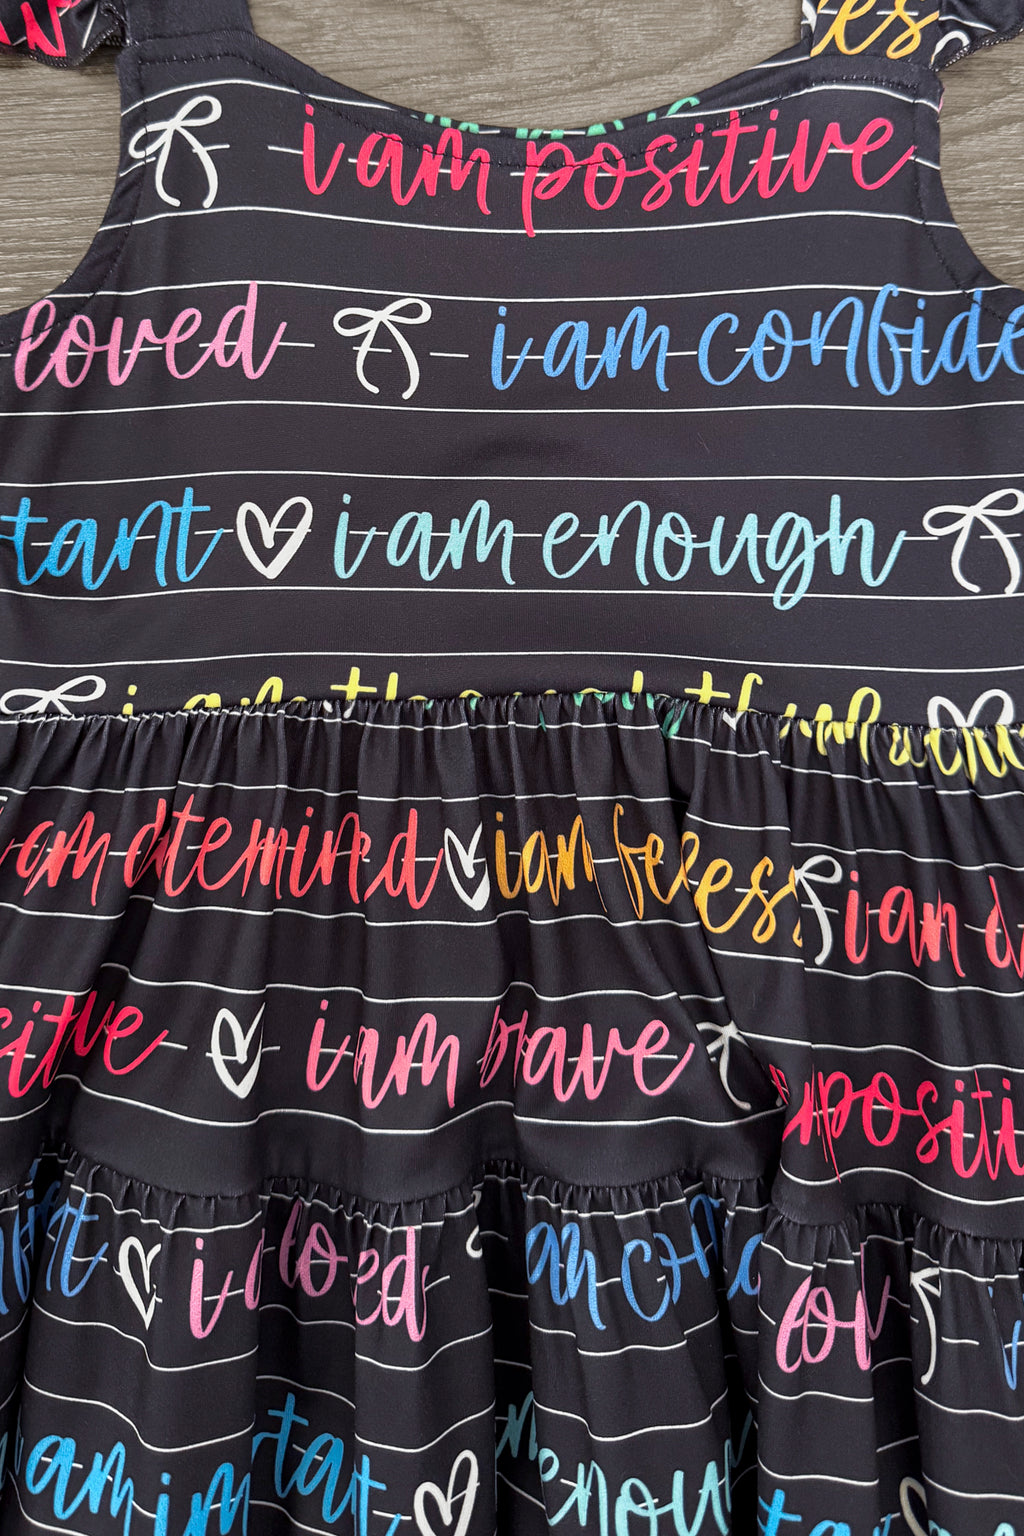 i am positive
loved i am confide
tant i am enough
i am
i am determined i am fearless i am
sitive i am brave positi
i loved am lov
am im tant enough